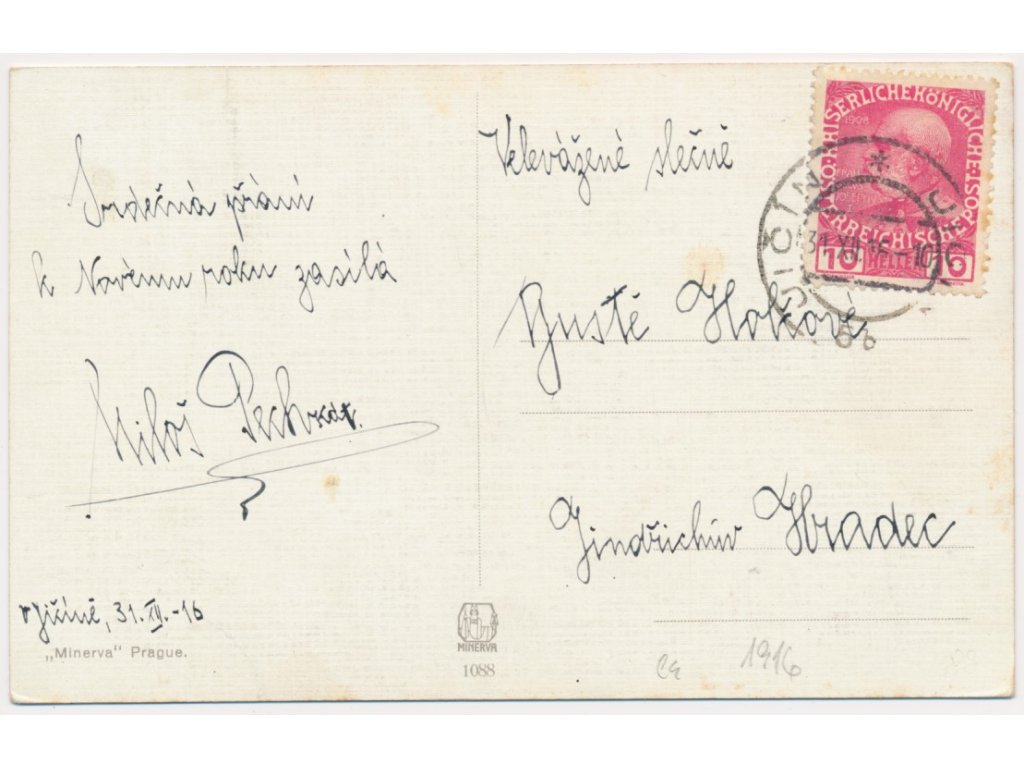 Srdečná přání
k Novému roku zasílá
Miloš Pech
v Jičíně, 31. XII. -16
„Minerva" Prague.
MINERVA
1088
Velevážené slečně
Gustě Holkové
Jindřichův Hradec
1916
KAISERLICHEKÖNIGLICHE
ÖSTERREICHISCHE POST
1908
10 HELLER 10
JIČÍN
31 XII 16 - 10